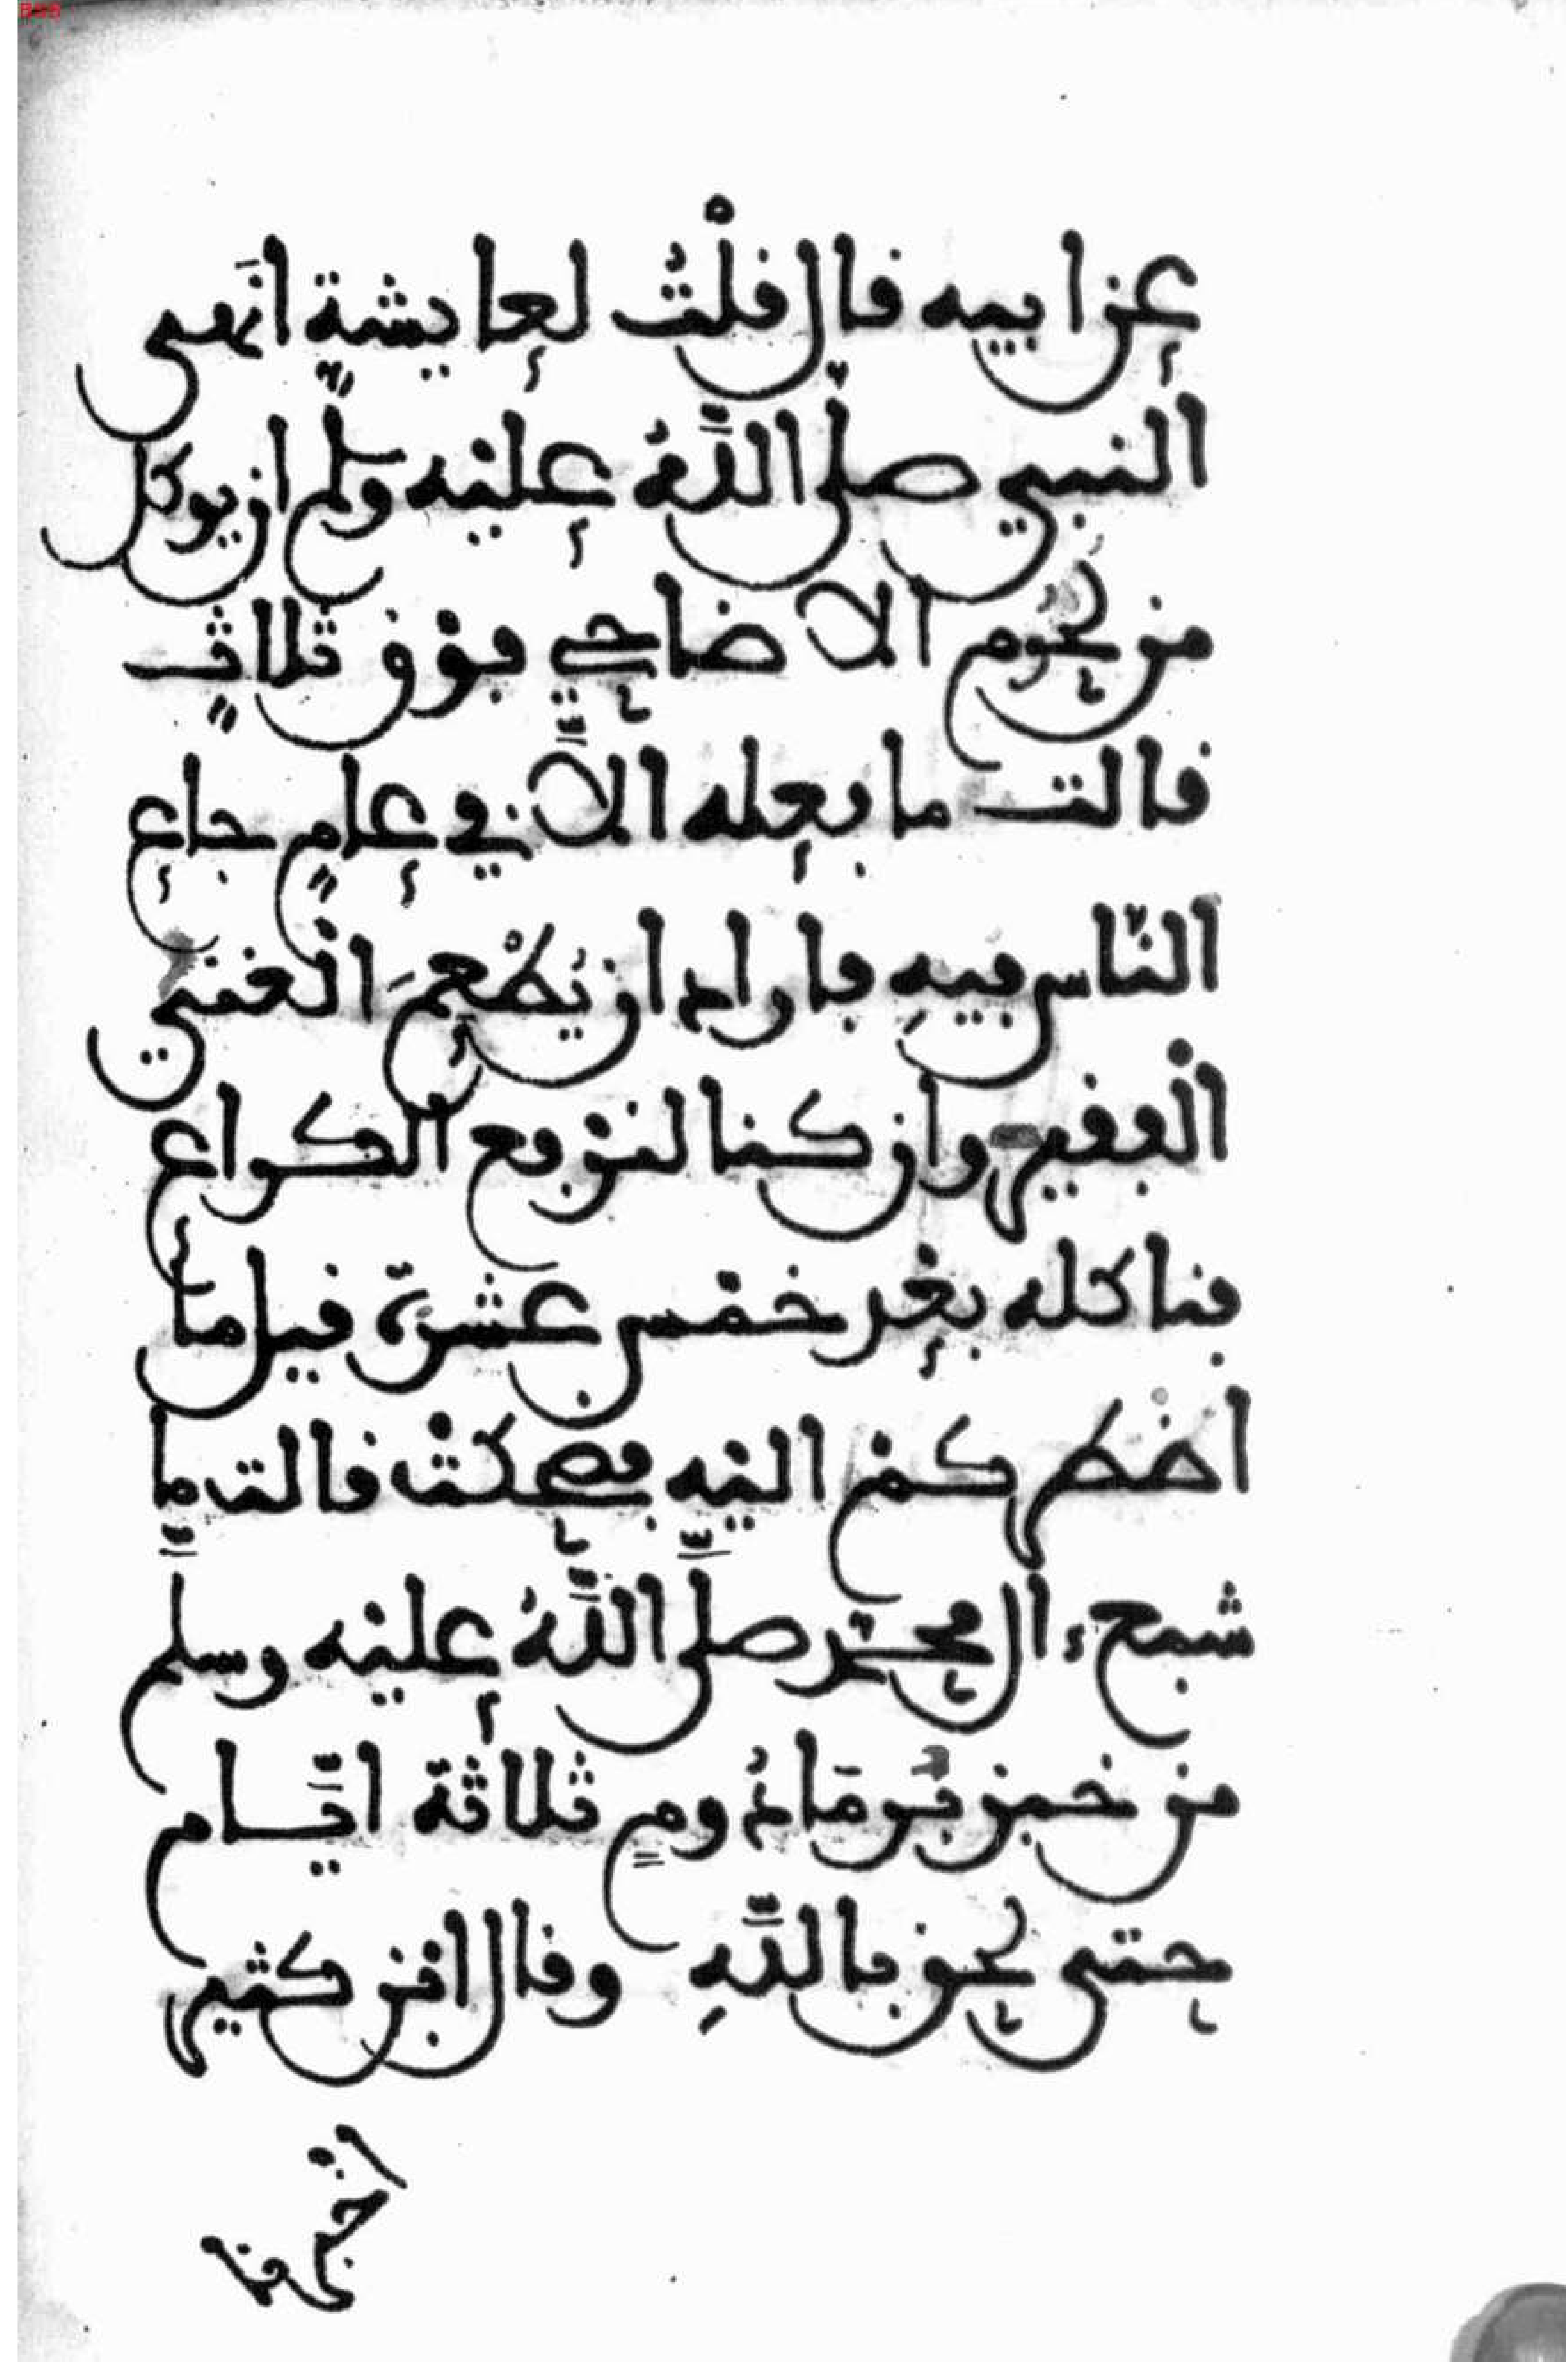 عن ابيه قال قلْتُ لعايشةٍ انَهى
النبي صلى اللَّهُ عليْه وسلم ان يوكل
من لحُوم الاضاحي فوْق ثلاثٍ
قالت ما فعله الاَّ في عامٍ جاع
النَّاس فيهِ فاراد ان يُطْعِمَ الْغني
الْفقير وان كنا لنرْفع الكراع
فناكله بعْد خمْس عَشْرَة قيل مَا
اضْطركمْ اليْه فضحكتْ قالت ما
شبع ءال محمَّد صلَّى اللَّهُ عليْه وسلم
من خبز بُر مَادُومٍ ثلاثَة ايَّام
حتى لحق باللَّهِ وقال ابْن كثير
اخْبرنا